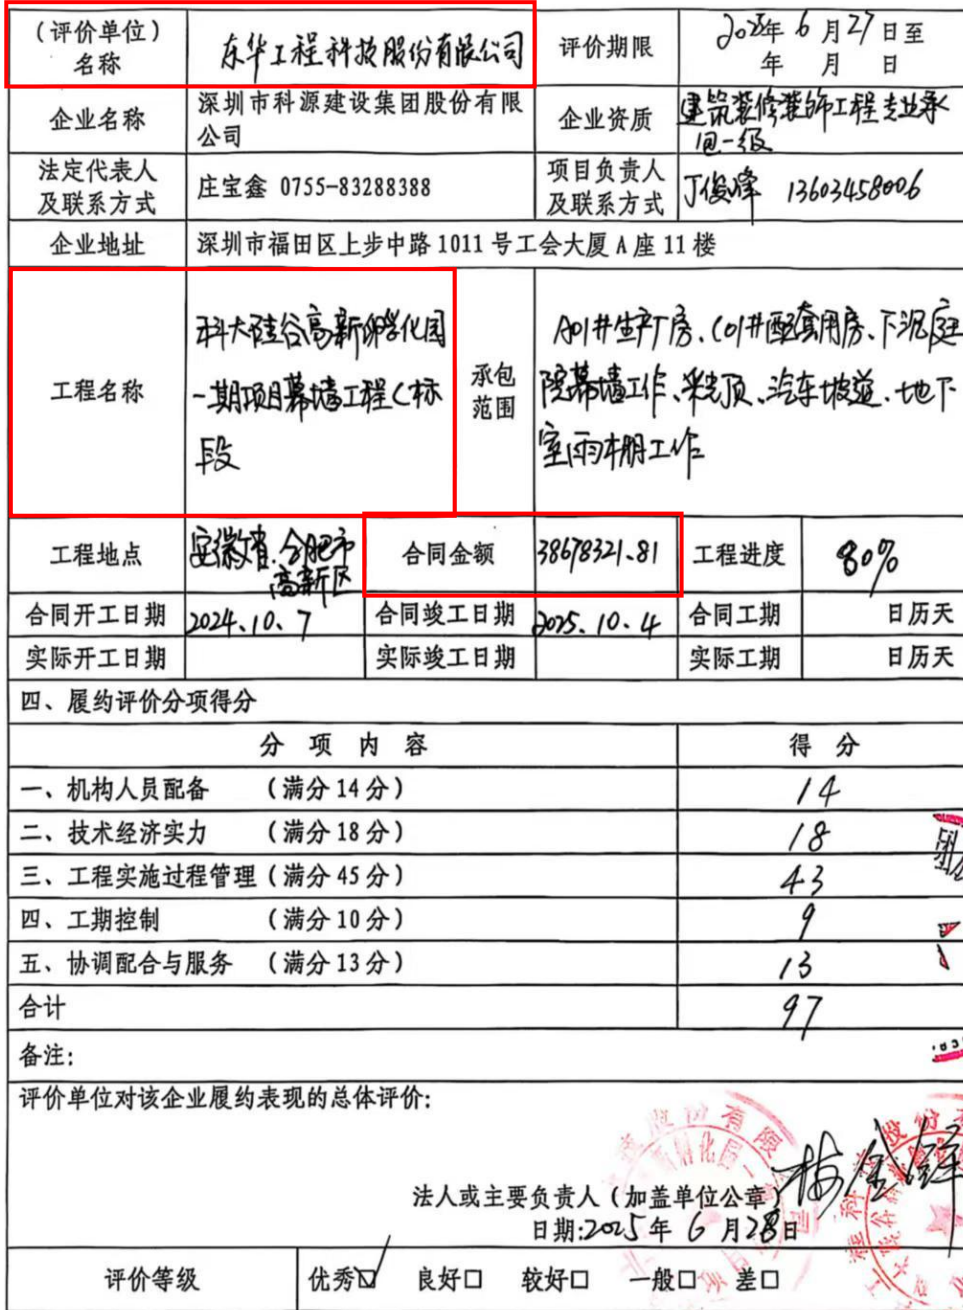 （评价单位）
名称
东华工程科技股份有限公司
评价期限
2025年6月27日至
年 月 日
企业名称
深圳市科源建设集团股份有限
公司
企业资质
建筑装修装饰工程专业承
包一级
法定代表人
及联系方式
庄宝鑫 0755-83288388
项目负责人
及联系方式
丁俊峰 13603458006
企业地址
深圳市福田区上步中路1011号工会大厦A座11楼
工程名称
科大硅谷高新孵化园
一期项目幕墙工程C标
段
承包
范围
A01#生产厂房、C01#配套用房、下沉庭
院幕墙工作、采光顶、汽车坡道、地下
室雨棚工作
工程地点
安徽省合肥市
高新区
合同金额
38678321.81
工程进度
80%
合同开工日期
2024.10.7
合同竣工日期
2025.10.4
合同工期
日历天
实际开工日期
实际竣工日期
实际工期
日历天
四、履约评价分项得分
分项内容
得分
一、机构人员配备 （满分14分）
14
二、技术经济实力 （满分18分）
18
三、工程实施过程管理（满分45分）
43
四、工期控制 （满分10分）
9
五、协调配合与服务 （满分13分）
13
合计
97
备注：
评价单位对该企业履约表现的总体评价：
法人或主要负责人（加盖单位公章）
日期:2025年6月28日
评价等级
优秀☑ 良好□ 较好□ 一般□ 差□